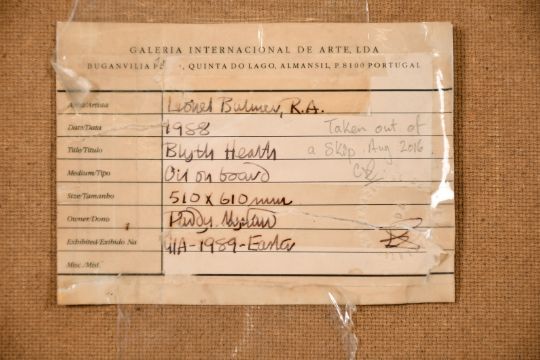 GALERIA INTERNACIONAL DE ARTE, LDA
BUGANVILIA QUINTA DO LAGO, ALMANSIL, P.8100 PORTUGAL
Artist/Artista Lionel Bulmer, R.A.
Date/Data 1988
Taken out of
Title/Titulo Blyth Heath
a Skip. Aug 2016.
Medium/Tipo Oil on board
Size/Tamanho 510 x 610 mm
Owner/Dono Paddy
Exhibited/Exibido Na -1989-Easter
Misc./Mist.